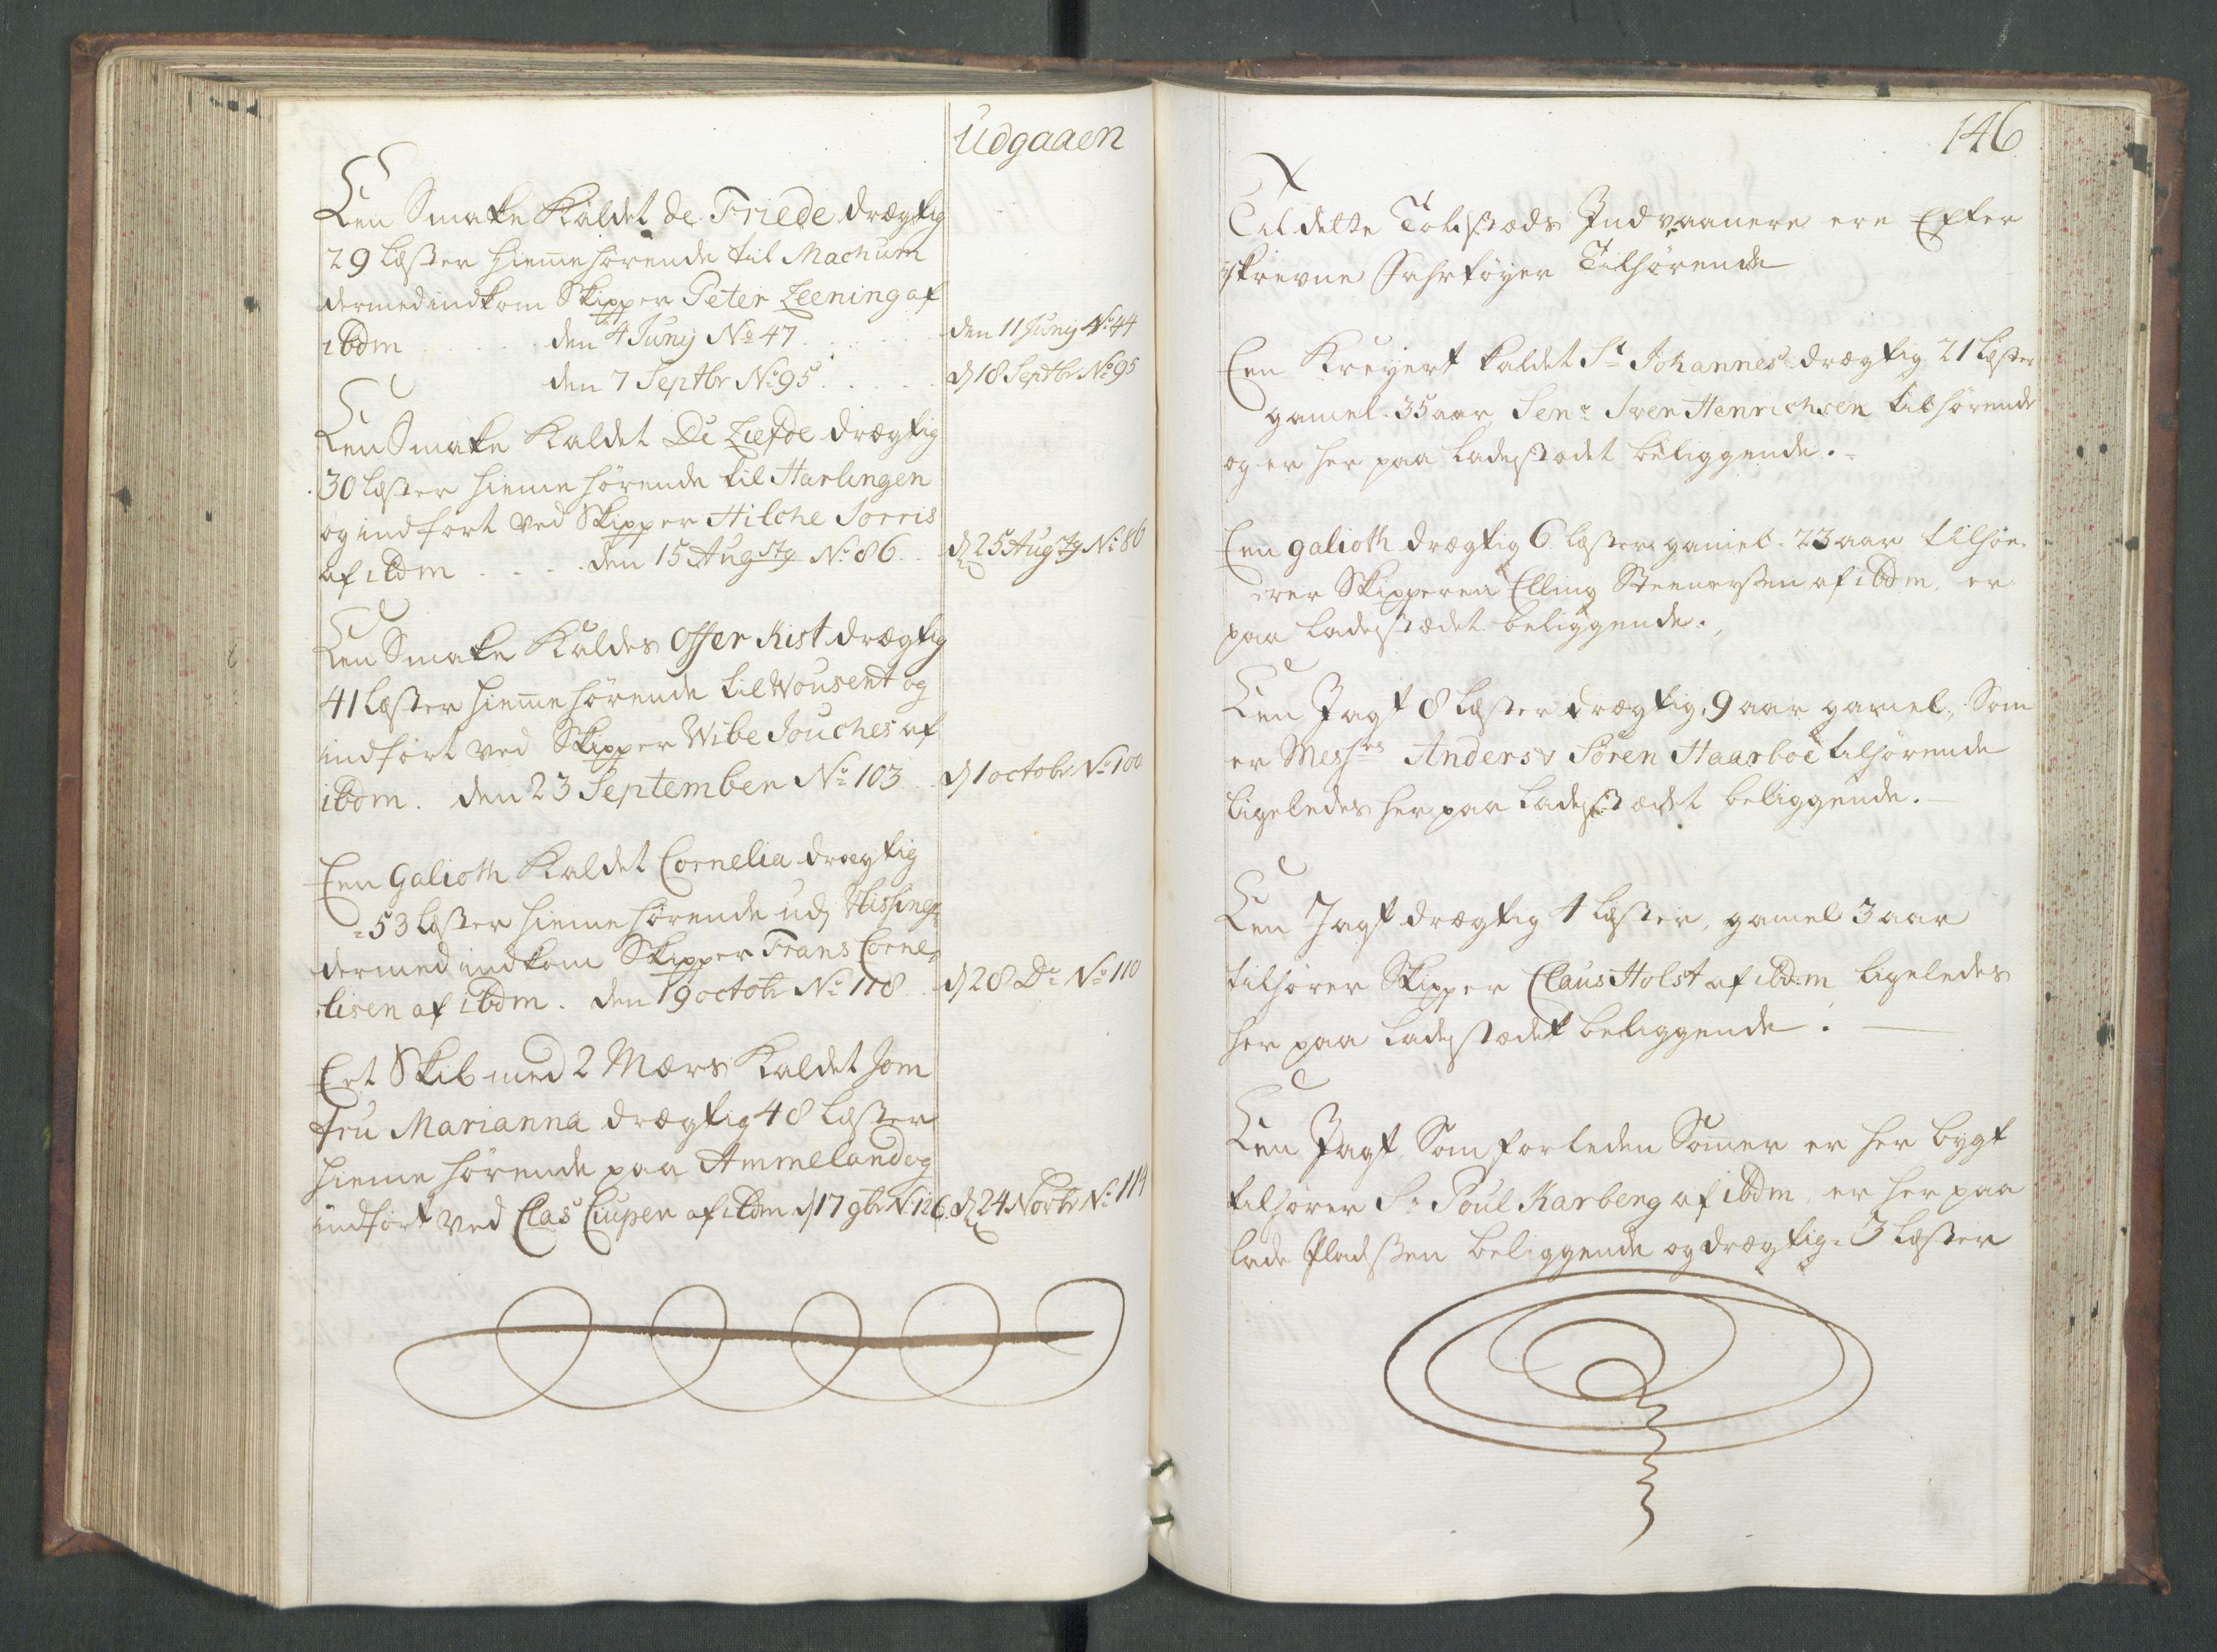 Udgaaen
Een Smake Kaldet de Friede drægtig
29 Læster hiemmehørende til Machum
dermed indkom Skipper Peter Leening af
ibdm . . . . . den 4 Junij No 47 . . . . . den 11 Junij No 44
den 7 Septbr No 95 . . . . . d 18 Septbr No 95
Een Smake Kaldet De Liefde drægtig
30 Læster hiemehørende til Harlingen
og indført ved Skipper Hilche Jorris
af ibdm . . . . den 15 Augstg No 86 . . d 25 Augstg No 86
Een Smake Kaldes Offer Kist drægtig
41 Læster hiemmehørende til Wousent og
indført ved Skipper Wibe Jouches af
ibdm. den 23 September No 103 . d 1 octobr No 100
Een Galioth Kaldet Cornelia drægtig
=53 Læster hiemehørende udj
dermed indkom Skipper Frans Corne=
lisen af ibdm. den 19 octobr No 118 . d 28 Do No 110
Eet Skib med 2 Mærs Kaldet Jom
fru Marianna drægtig 48 Læster
hiemehørende paa Ammeland og
indført ved Clas Cuiper af ibdm d 17 9br No 126. d 24 Novbr No 114
146
Til dette Toldstæds Indvaanere ere Efter
skrevne Fahrtøyer Tilhørende
Een Kreyert kaldet St Johannes drægtig 21 Læster
gamel 35 aar, Senr Iver Henrichsen tilhørende
og er her paa Ladestædet beliggende.=
Een galioth drægtig 6 Læster gamel 23 aar tilhø-
rer Skipperen Elling Steenersen af ibdm, er
paa Ladestædet beliggende.
Een Jagt 8 Læster drægtig, 9 aar gamel, Som
er Messrs Anders & Søren Haarboe tilhørende
ligeledes her paa Ladestædet beliggende.
Een Jagt drægtig 4 Læster, gamel 3 aar
tilhører Skipper Claus Holst af ibdm ligeledes
her paa Ladestædet beliggende.
Een Jagt, Som forleden Somer er her bygt
tilhører Sr Poul Karberg af ibdm, er her paa
lade Pladssen beliggende og drægtig 3 Læster